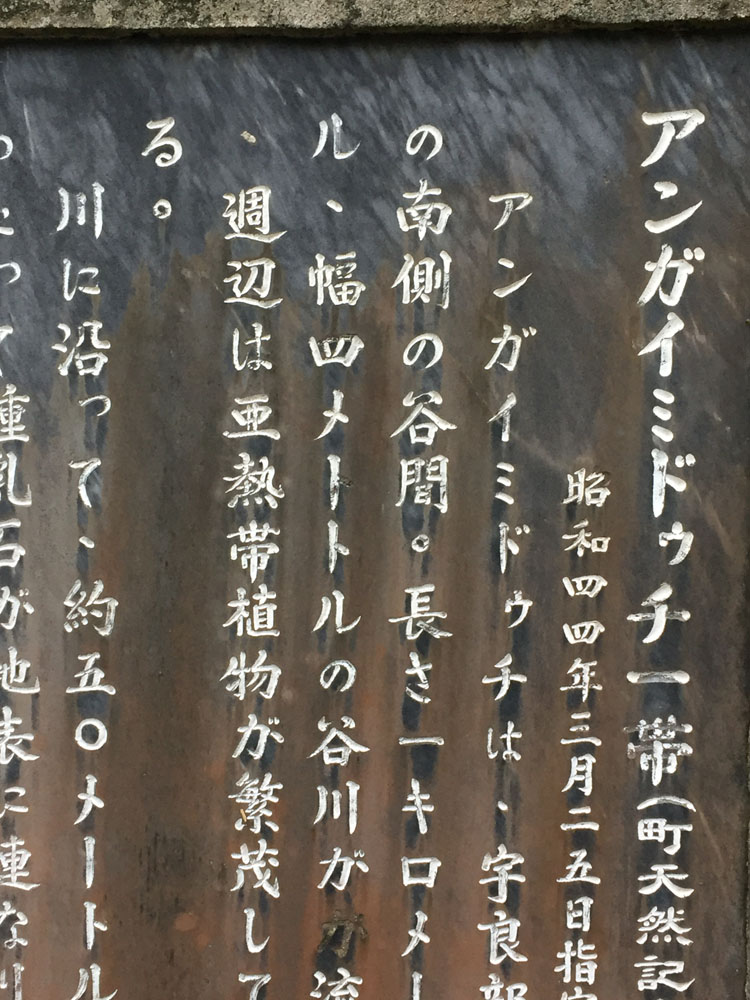 アンガイミドゥチ一帯(町天然記
昭和四四年三月二五日指定
アンガイミドゥチは、字良部
の南側の谷間。長さ一キロメー
ル、幅四メトトルの谷川がが流
、週辺は亜熱帯植物が繁茂して
る。
川に沿って、約五〇メートル
って鍾乳石が地表に連なり